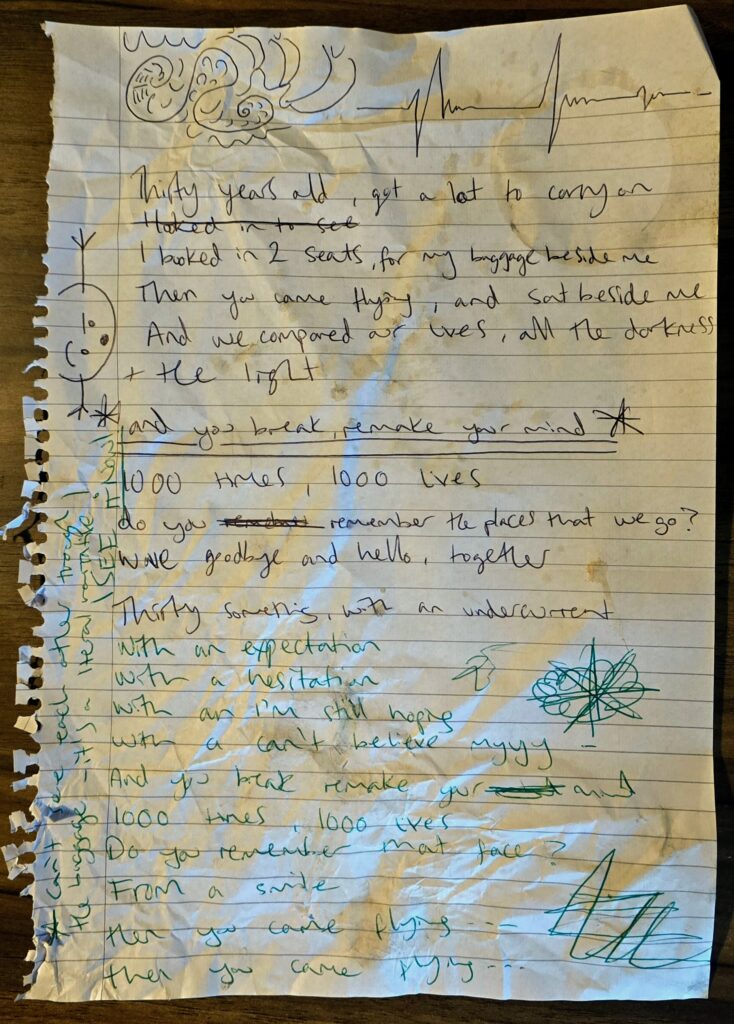 Thirty years old, got a lot to carry on
I looked in to see
I booked in 2 seats, for my baggage beside me
Then you came flying, and sat beside me
And we compared our lives, all the darkness
+ the light
and you break, remake your mind
1000 times, 1000 lives
do you remember the places that we go?
Wave goodbye and hello, together
Thirty something, with an undercurrent
With an expectation
With a hesitation
With an I'm still hoping
With a can't believe myyy -
And you break remake your mind
1000 times, 1000 lives
Do you remember that face?
From a smile
then you came flying ---
then you came flying ---
* Can't see each other through
the baggage - it's a literal mountain!
I SEE IT NOW!